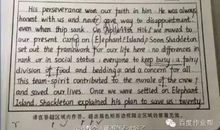 His perseverance won our faith in him. He was always
honest with us and never gave way to disappointment
even when this ship sank. On we moved to
our present camp on Elephant Island. Soon Shackleton
set out the framework for our life here: no differences in
rank or in social status; everyone to keep busy; a fair
division of food and bedding; and a concern for all
this team-spirit contributed to the morale of the crew
and saved our lives. Once we were settled on Elephant
Island, Shackleton explained his plan to save us twenty
百度作业帮